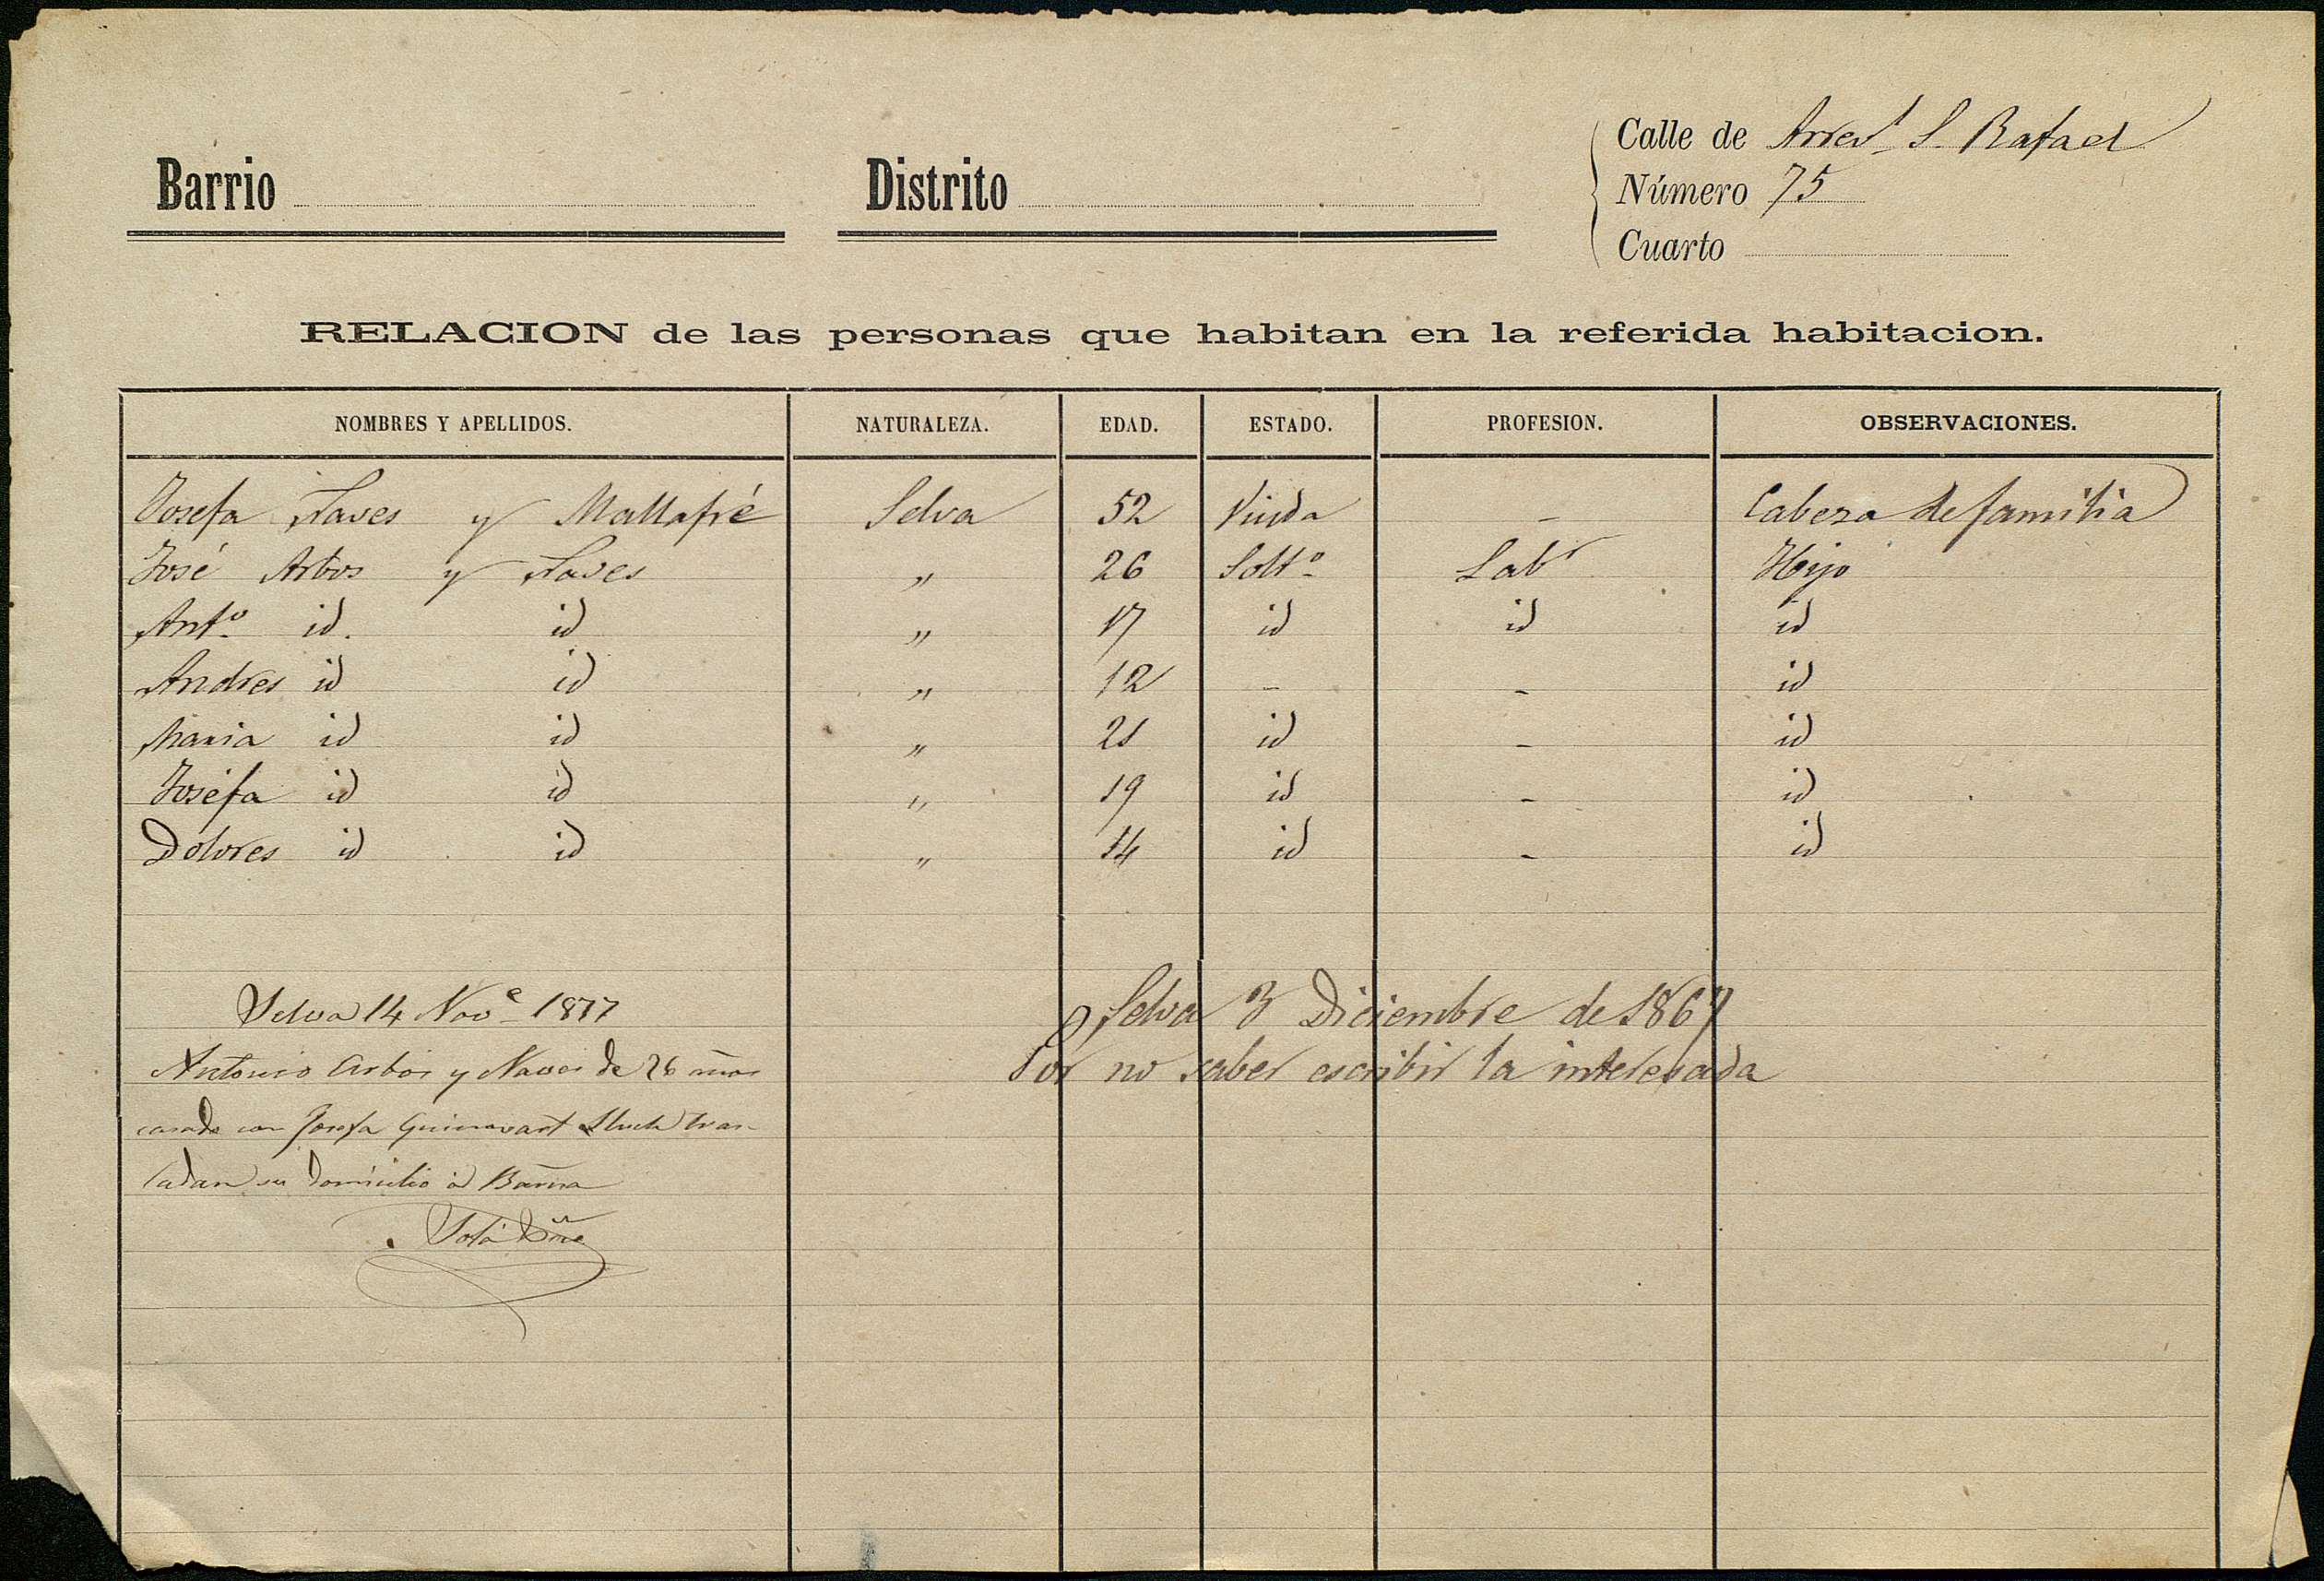 Calle de Arrev.l S. Rafael
Barrio Distrito Número 75
Cuarto
RELACION de las personas que habitan en la referida habitacion.
NOMBRES Y APELLIDOS. NATURALEZA. EDAD. ESTADO. PROFESION. OBSERVACIONES.
Josefa Naves y Mallafré Selva 52 Viuda - Cabeza de familia
José Arbos y Naves " 26 Solt.o Lab.r Hijo
Ant.o id. id " 17 id id id
Andres id id " 12 - - id
Maria id id " 21 id - id
Josefa id id " 19 id - id
Dolores id id " 14 id - id
Selva 3 Diciembre de 1867
Por no saber escribir la interesada
Selva 14 Nov.e 1877
Antonio Arbós y Naves de 26 años
casado con Josefa Guinovart Lluch tras-
ladan su domicilio á Barna
Solá